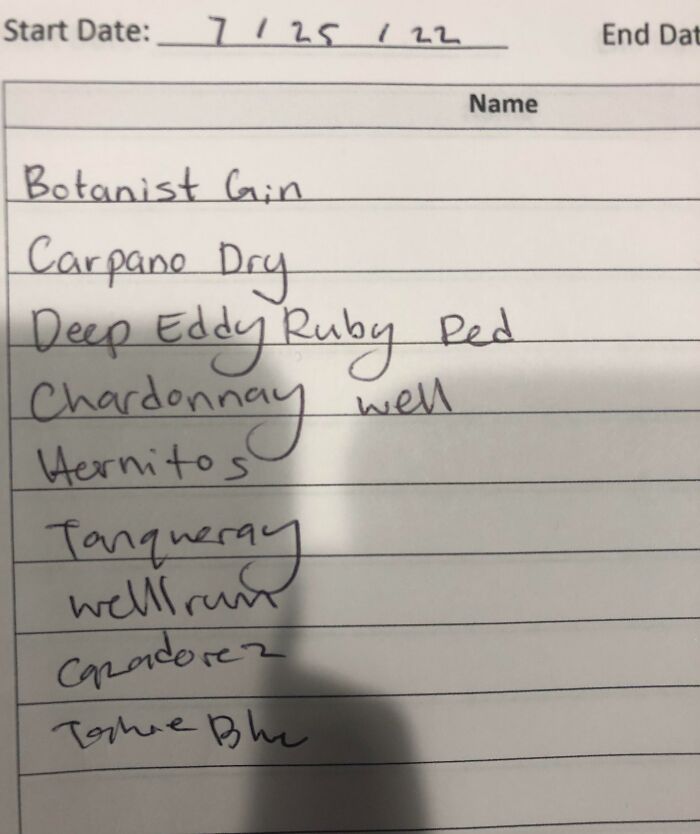 Start Date: 7 / 25 / 22 End Dat
Name
Botanist Gin
Carpano Dry
Deep Eddy Ruby Red
Chardonnay well
Hernitos
Tanqueray
well rum
Cazadorez